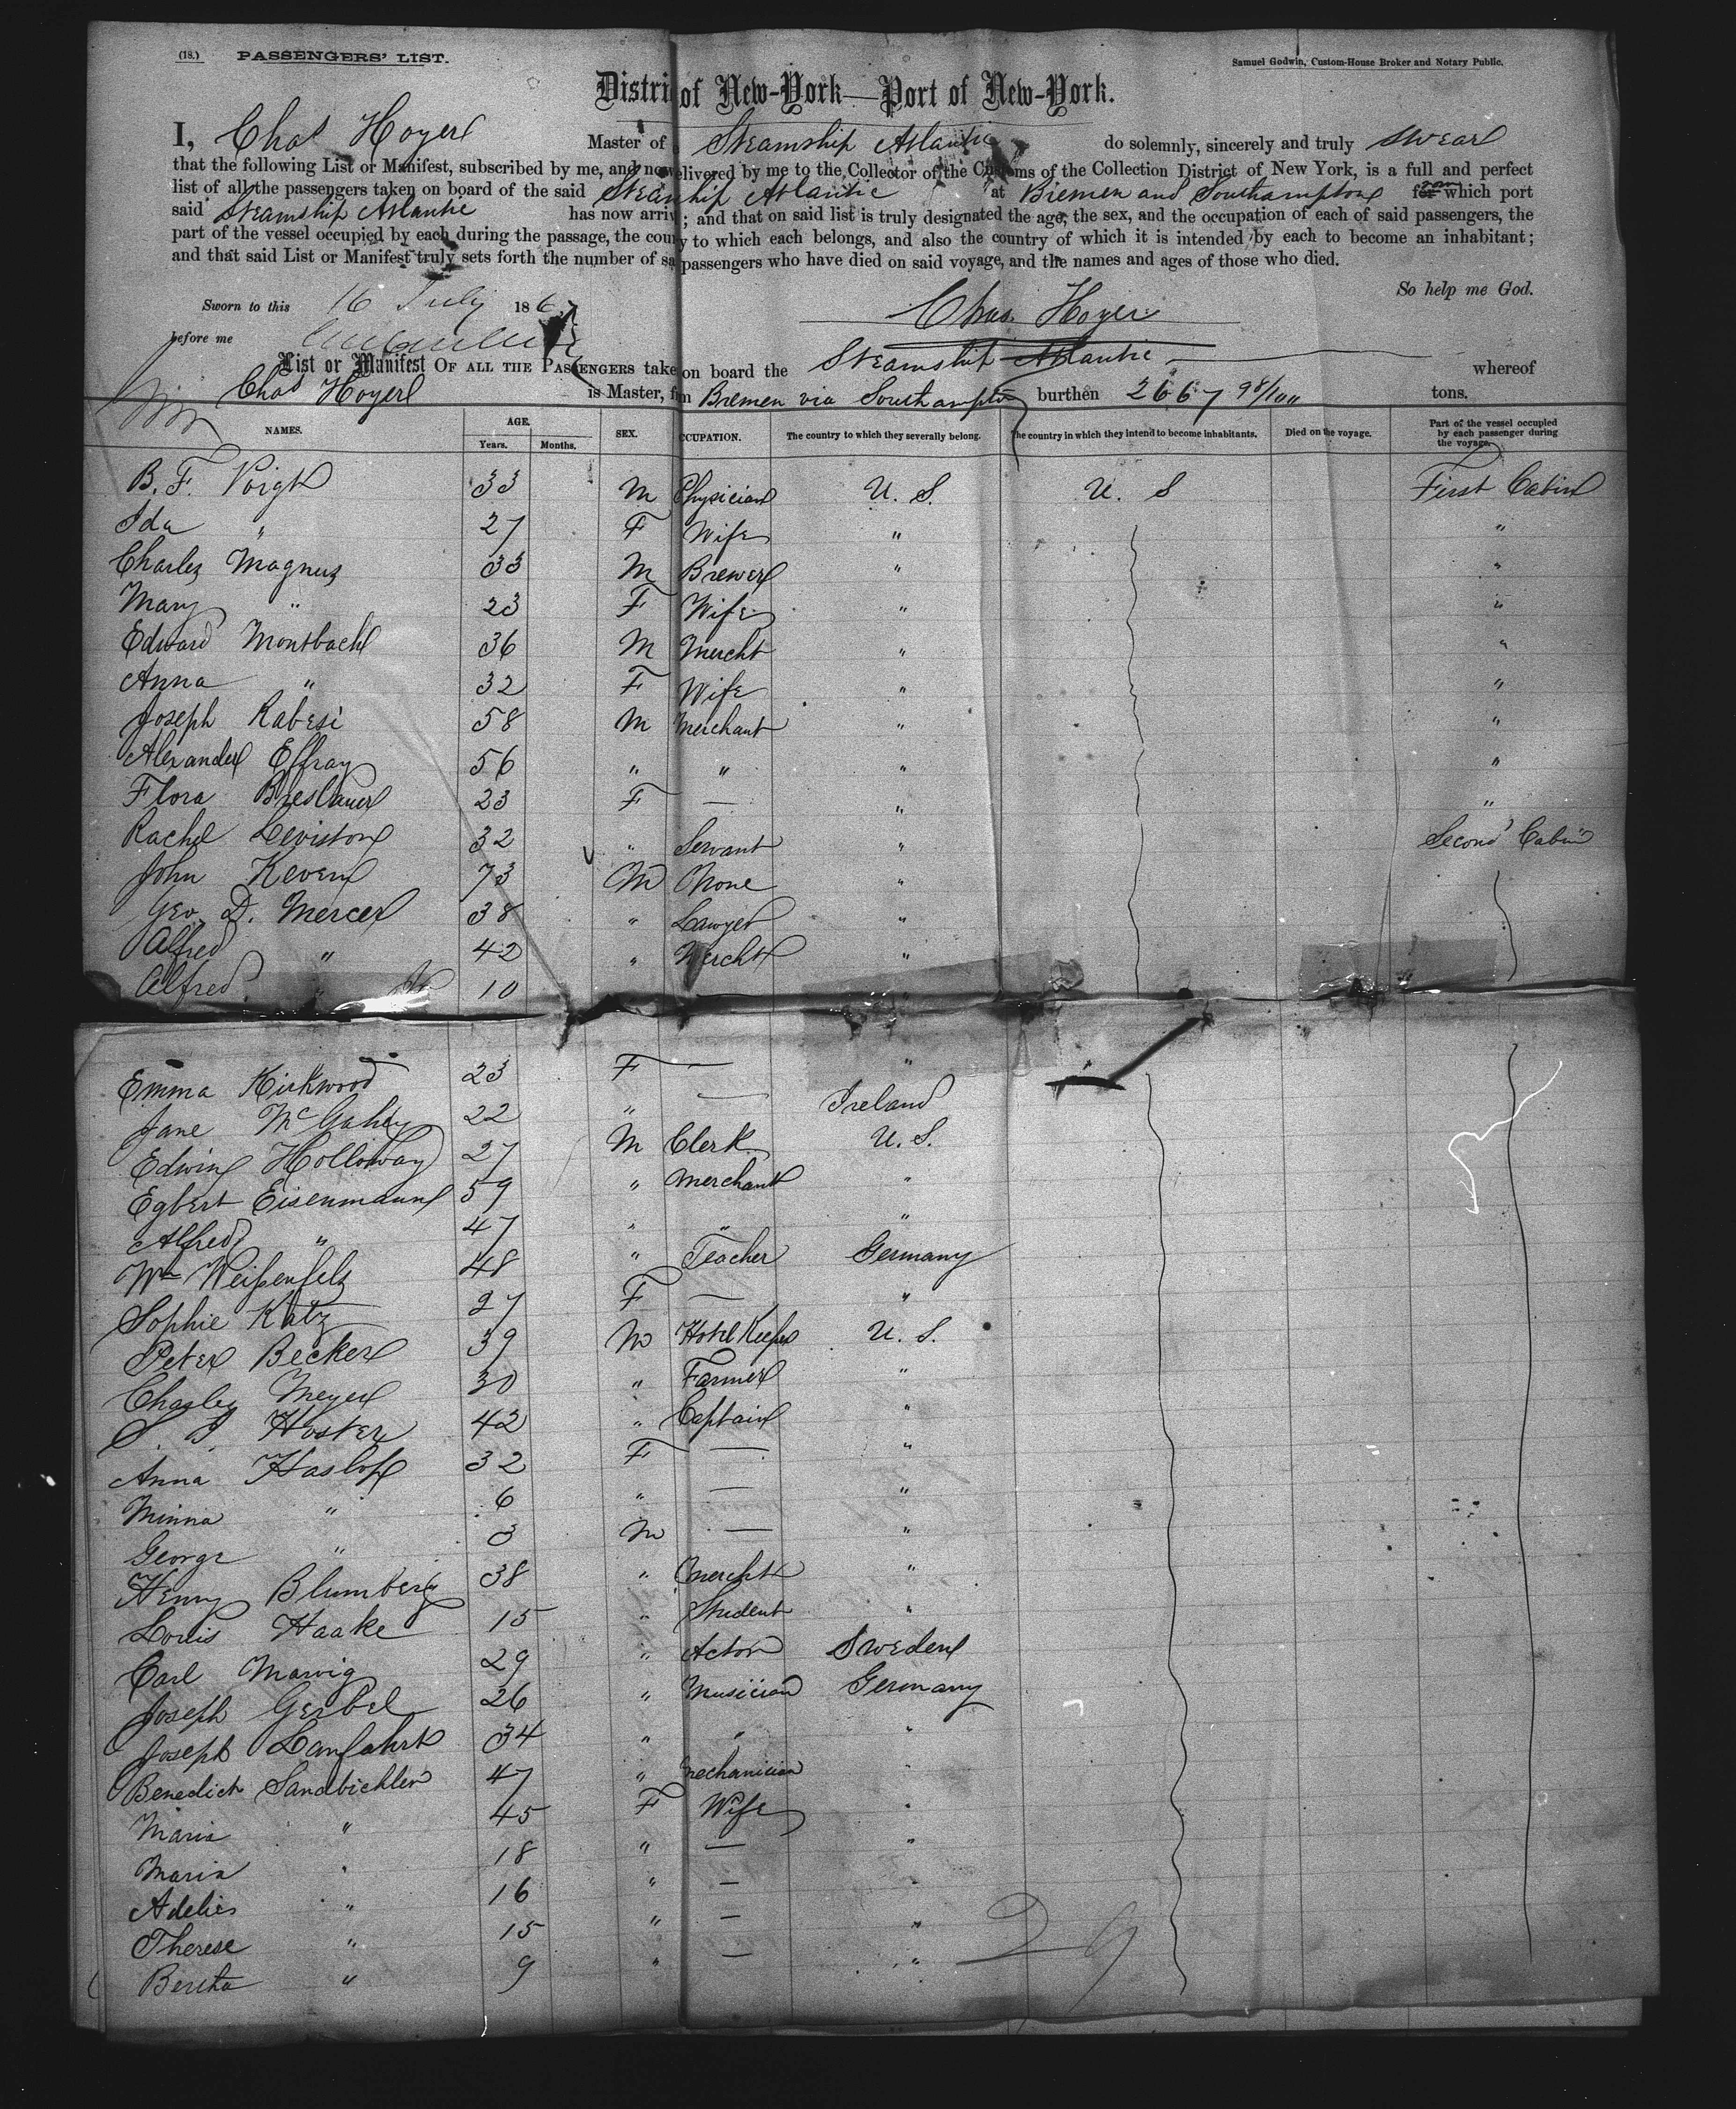 (18.) PASSENGERS' LIST.
Samuel Godwin, Custom-House Broker and Notary Public.
Distri of New-York—Port of New-York.
I, Chas Hoyer Master of Steamship Atlantic do solemnly, sincerely and truly swear
that the following List or Manifest, subscribed by me, and now elivered by me to the Collector of the Customs of the Collection District of New York, is a full and perfect
list of all the passengers taken on board of the said Steamship Atlantic at Bremen and Southampton from which port
said Steamship Atlantic has now arriv ; and that on said list is truly designated the age, the sex, and the occupation of each of said passengers, the
part of the vessel occupied by each during the passage, the coun y to which each belongs, and also the country of which it is intended by each to become an inhabitant;
and that said List or Manifest truly sets forth the number of sa passengers who have died on said voyage, and the names and ages of those who died.
So help me God.
Sworn to this 16 July 1867
Chas. Hoyer
before me
List or Manifest OF ALL THE PASSENGERS take on board the Steamship Atlantic whereof
Chas Hoyer is Master, f m Bremen via Southampton burthen 2667 98/100 tons.
NAMES. AGE. Years. Months. SEX. CCUPATION. The country to which they severally belong. The country in which they intend to become inhabitants. Died on the voyage. Part of the vessel occupied by each passenger during the voyage.
B. F. Voigt 33 M Physician U. S. U. S First Cabin
Ida " 27 F Wife " "
Charles Magnus 33 M Brewer " "
Mary " 23 F Wife " "
Edward Montbach 36 M Mercht " "
Anna " 32 F Wife " "
Joseph Rabesi 58 M Merchant " "
Alexander Effray 56 " " " "
Flora Breslauer 23 F — " "
Rachel Leviston 32 " Servant " Second Cabin
John Keven 73 M None "
Geo. D. Mercer 38 " Lawyer "
Alfred " 42 " Mercht "
Alfred " Jr 10
Emma Kirkwood 23 F — "
Jane McGahey 22 " — Ireland
Edwin Holloway 27 M Clerk U. S.
Egbert Eisenmann 59 " Merchant "
Alfred " 47 " " "
Wm Weißenfels 48 " Teacher Germany
Sophie Katz 27 F — "
Peter Becker 39 M Hotel Keeper U. S.
Charles Meyer 30 " Farmer "
S. J. Hoster 42 " Captain "
Anna Haslop 32 F — "
Minna " 6 " — "
George " 3 M — "
Henry Blumberg 38 " Mercht "
Louis Haake 15 " Student "
Carl Marwig 29 " Actor Sweden
Joseph Gerbel 26 " Musician Germany
Joseph Lanfahrt 34 " " "
Benedict Sandbichler 47 " Mechanician "
Maria " 45 F Wife "
Maria " 18 " — "
Adelies " 16 " — "
Therese " 15 " — "
Bertha " 9 " — "
29